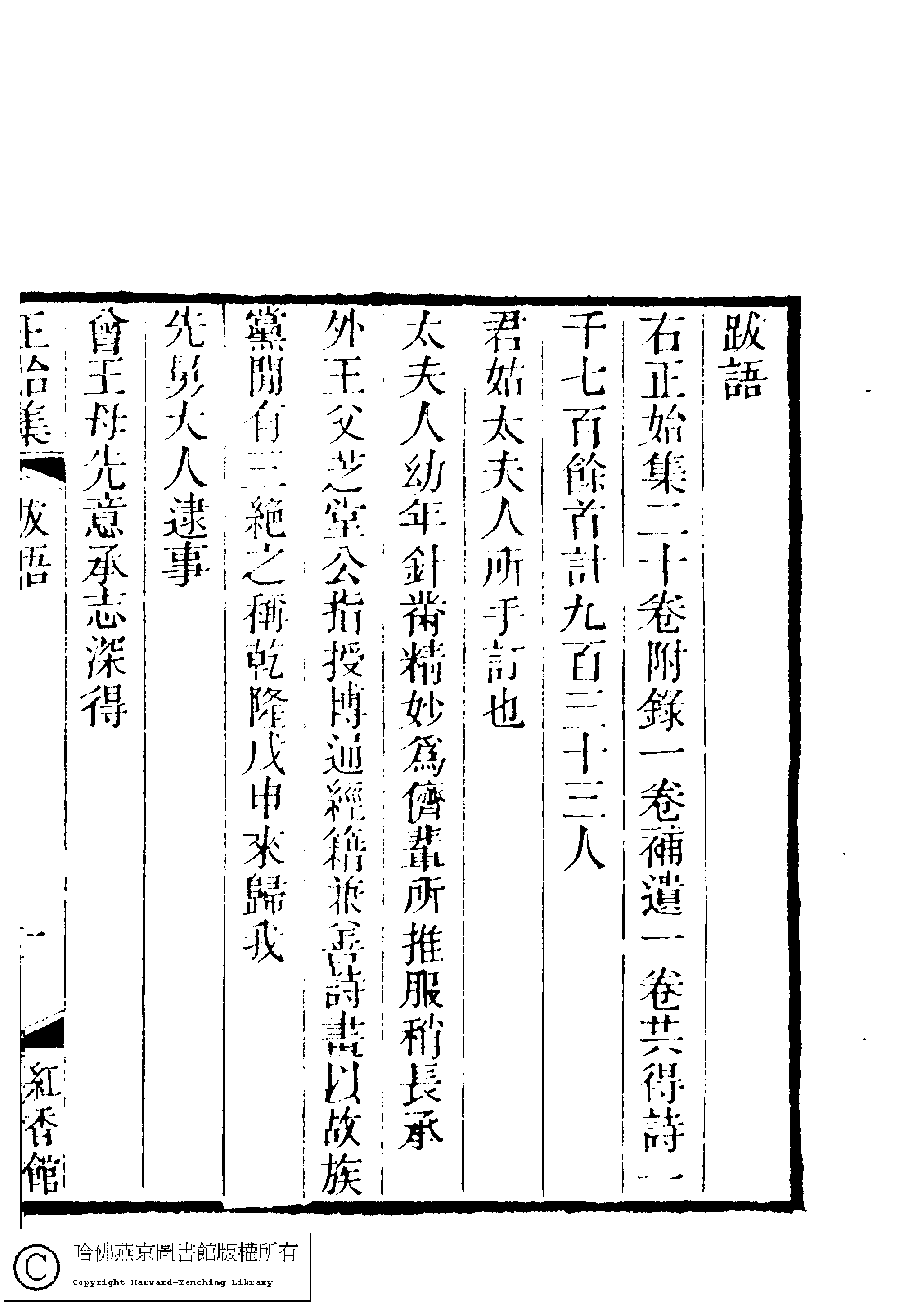 跋語
右正始集二十卷附錄一卷補遺一卷共得詩一
千七百餘首計九百三十三人
君姑太夫人所手訂也
太夫人幼年針黹精妙爲儕輩所推服稍長承
外王父芝堂公指授博通經籍兼善詩畫以故族
黨閒有三絶之稱乾隆戊申來歸我
先舅大人逮事
曾王母先意承志深得
正始集 跋語 一 紅香館
哈佛燕京圖書館版權所有
Copyright Harvard-Yenching Library